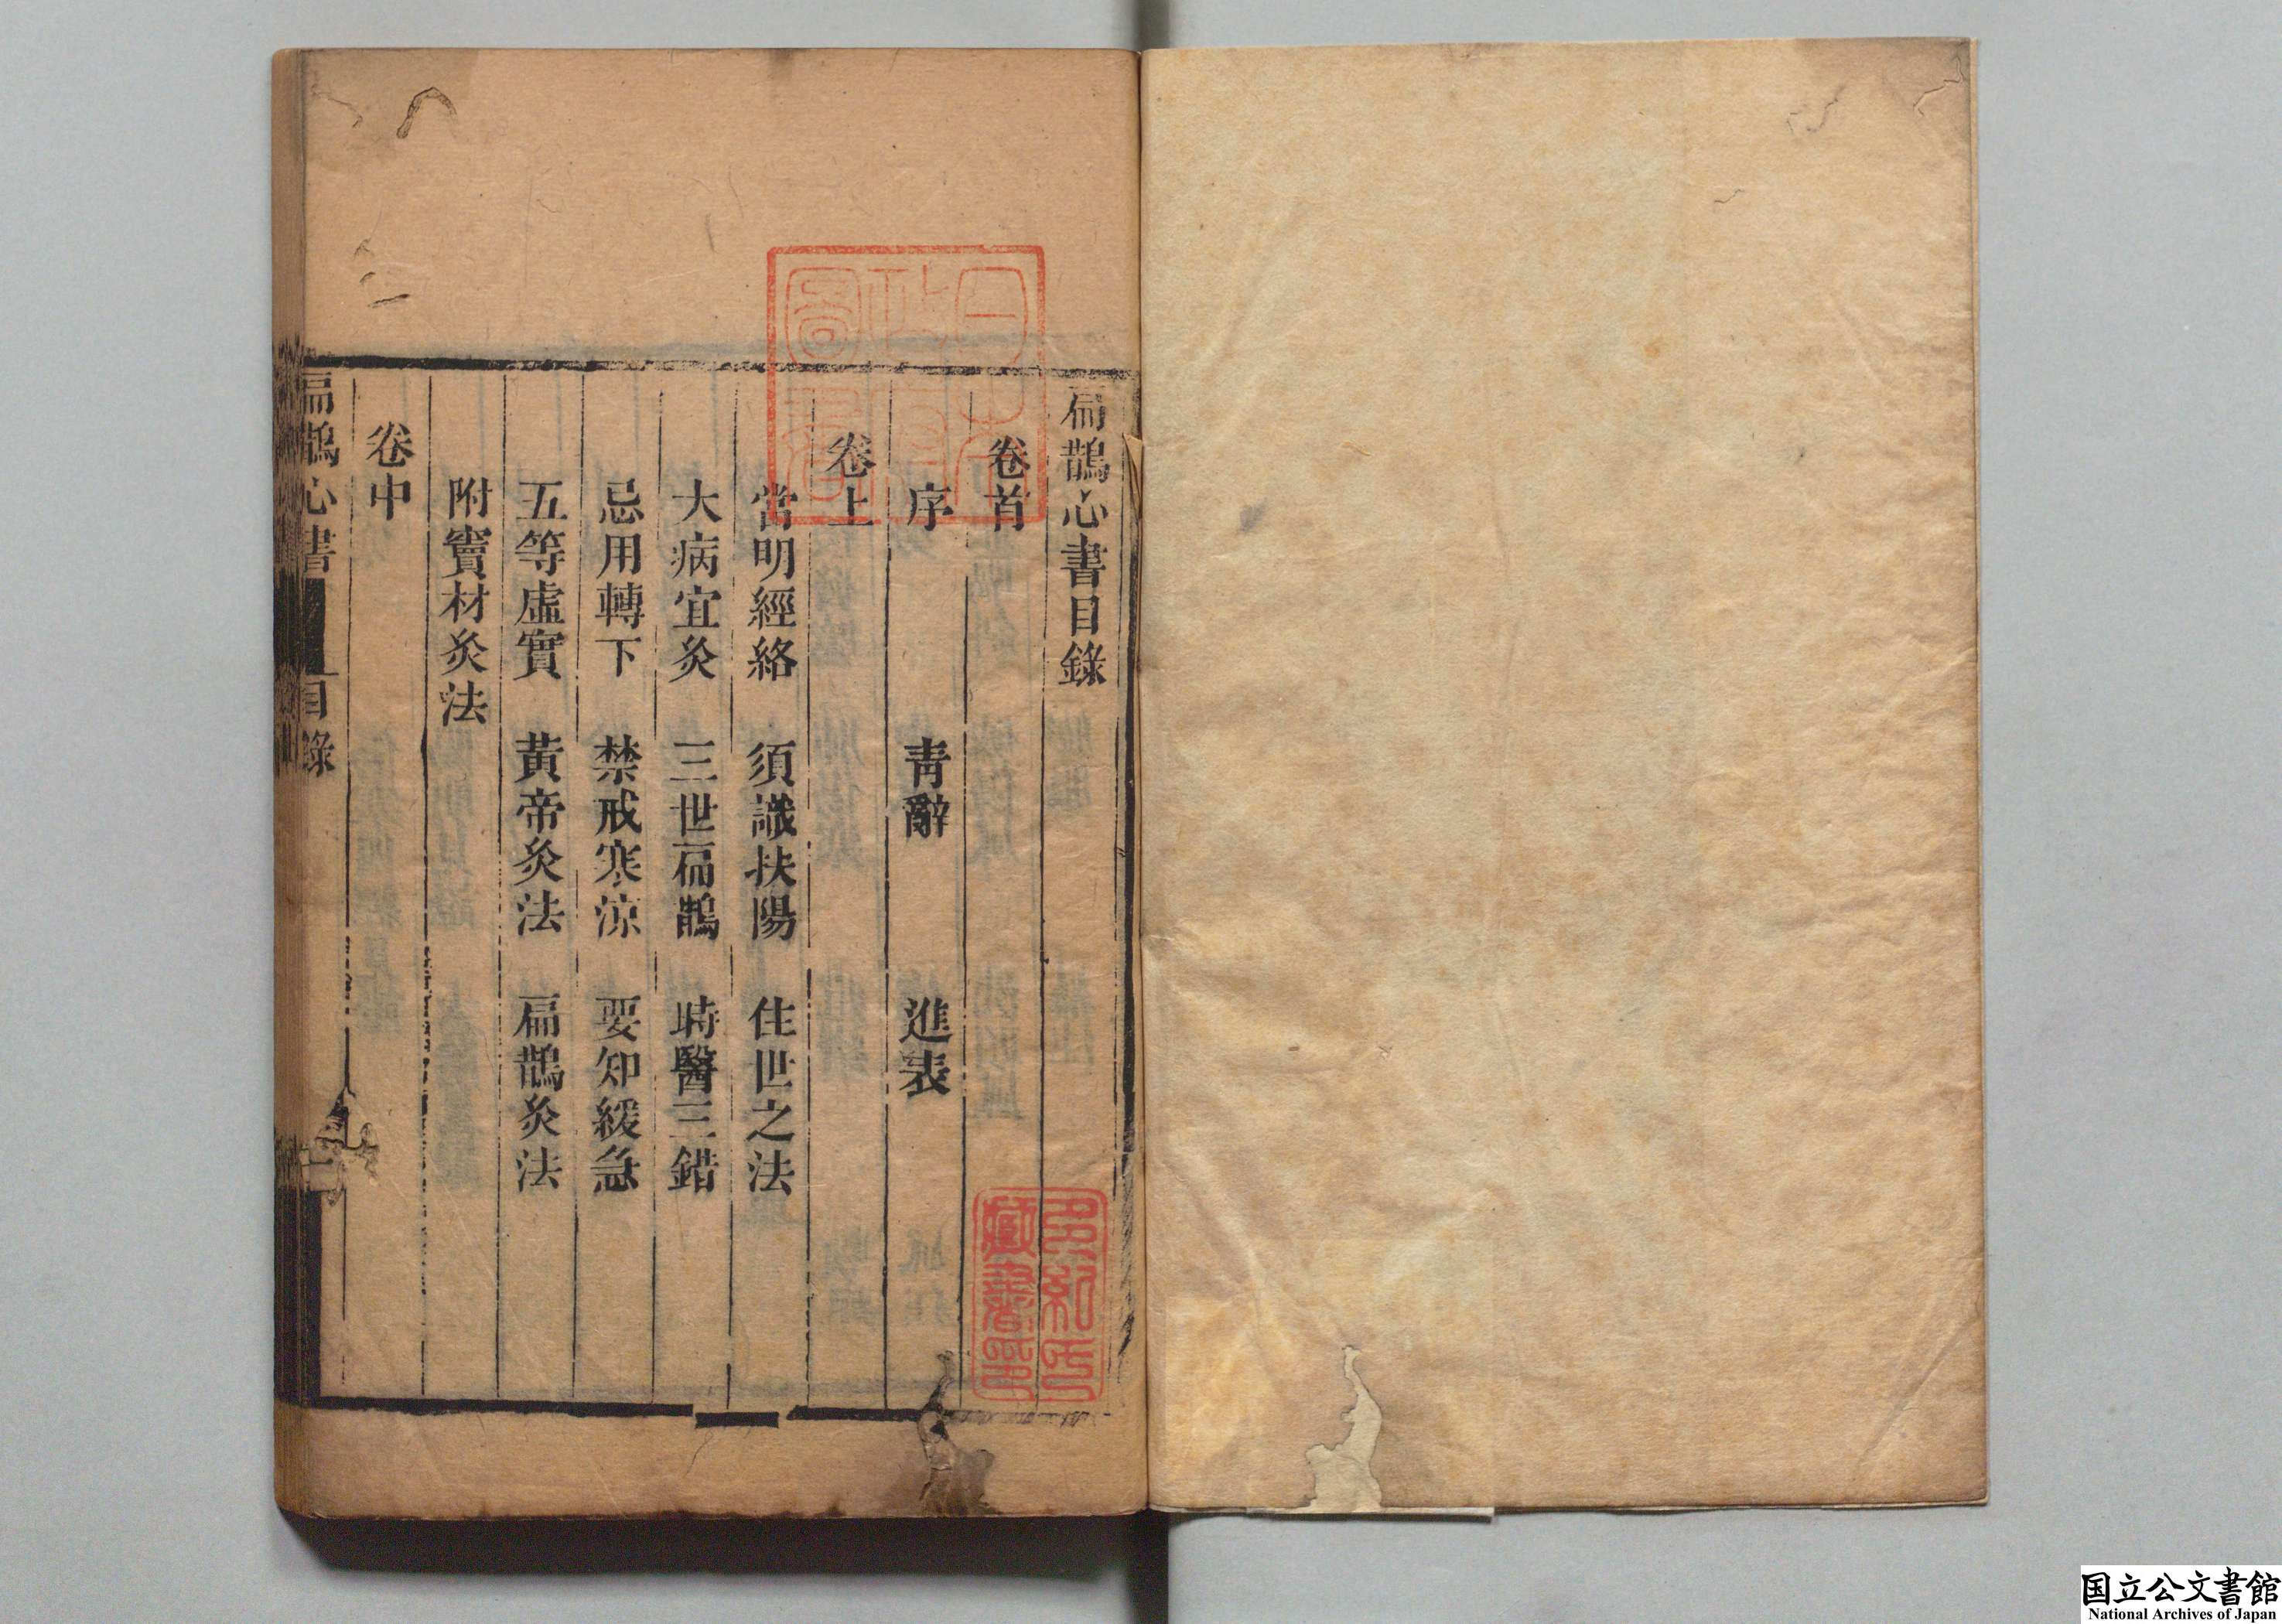 扁鵲心書目錄
卷首
序 青辭 進表
卷上
當明經絡 須識扶陽 住世之法
大病宜灸 三世扁鵲 時醫三錯
忌用轉下 禁戒寒涼 要知緩急
五等虛實 黃帝灸法 扁鵲灸法
附竇材灸法
卷中
扁鵲心書 目錄 一
日本政府圖書
多紀氏藏書印
国立公文書館
National Archives of Japan